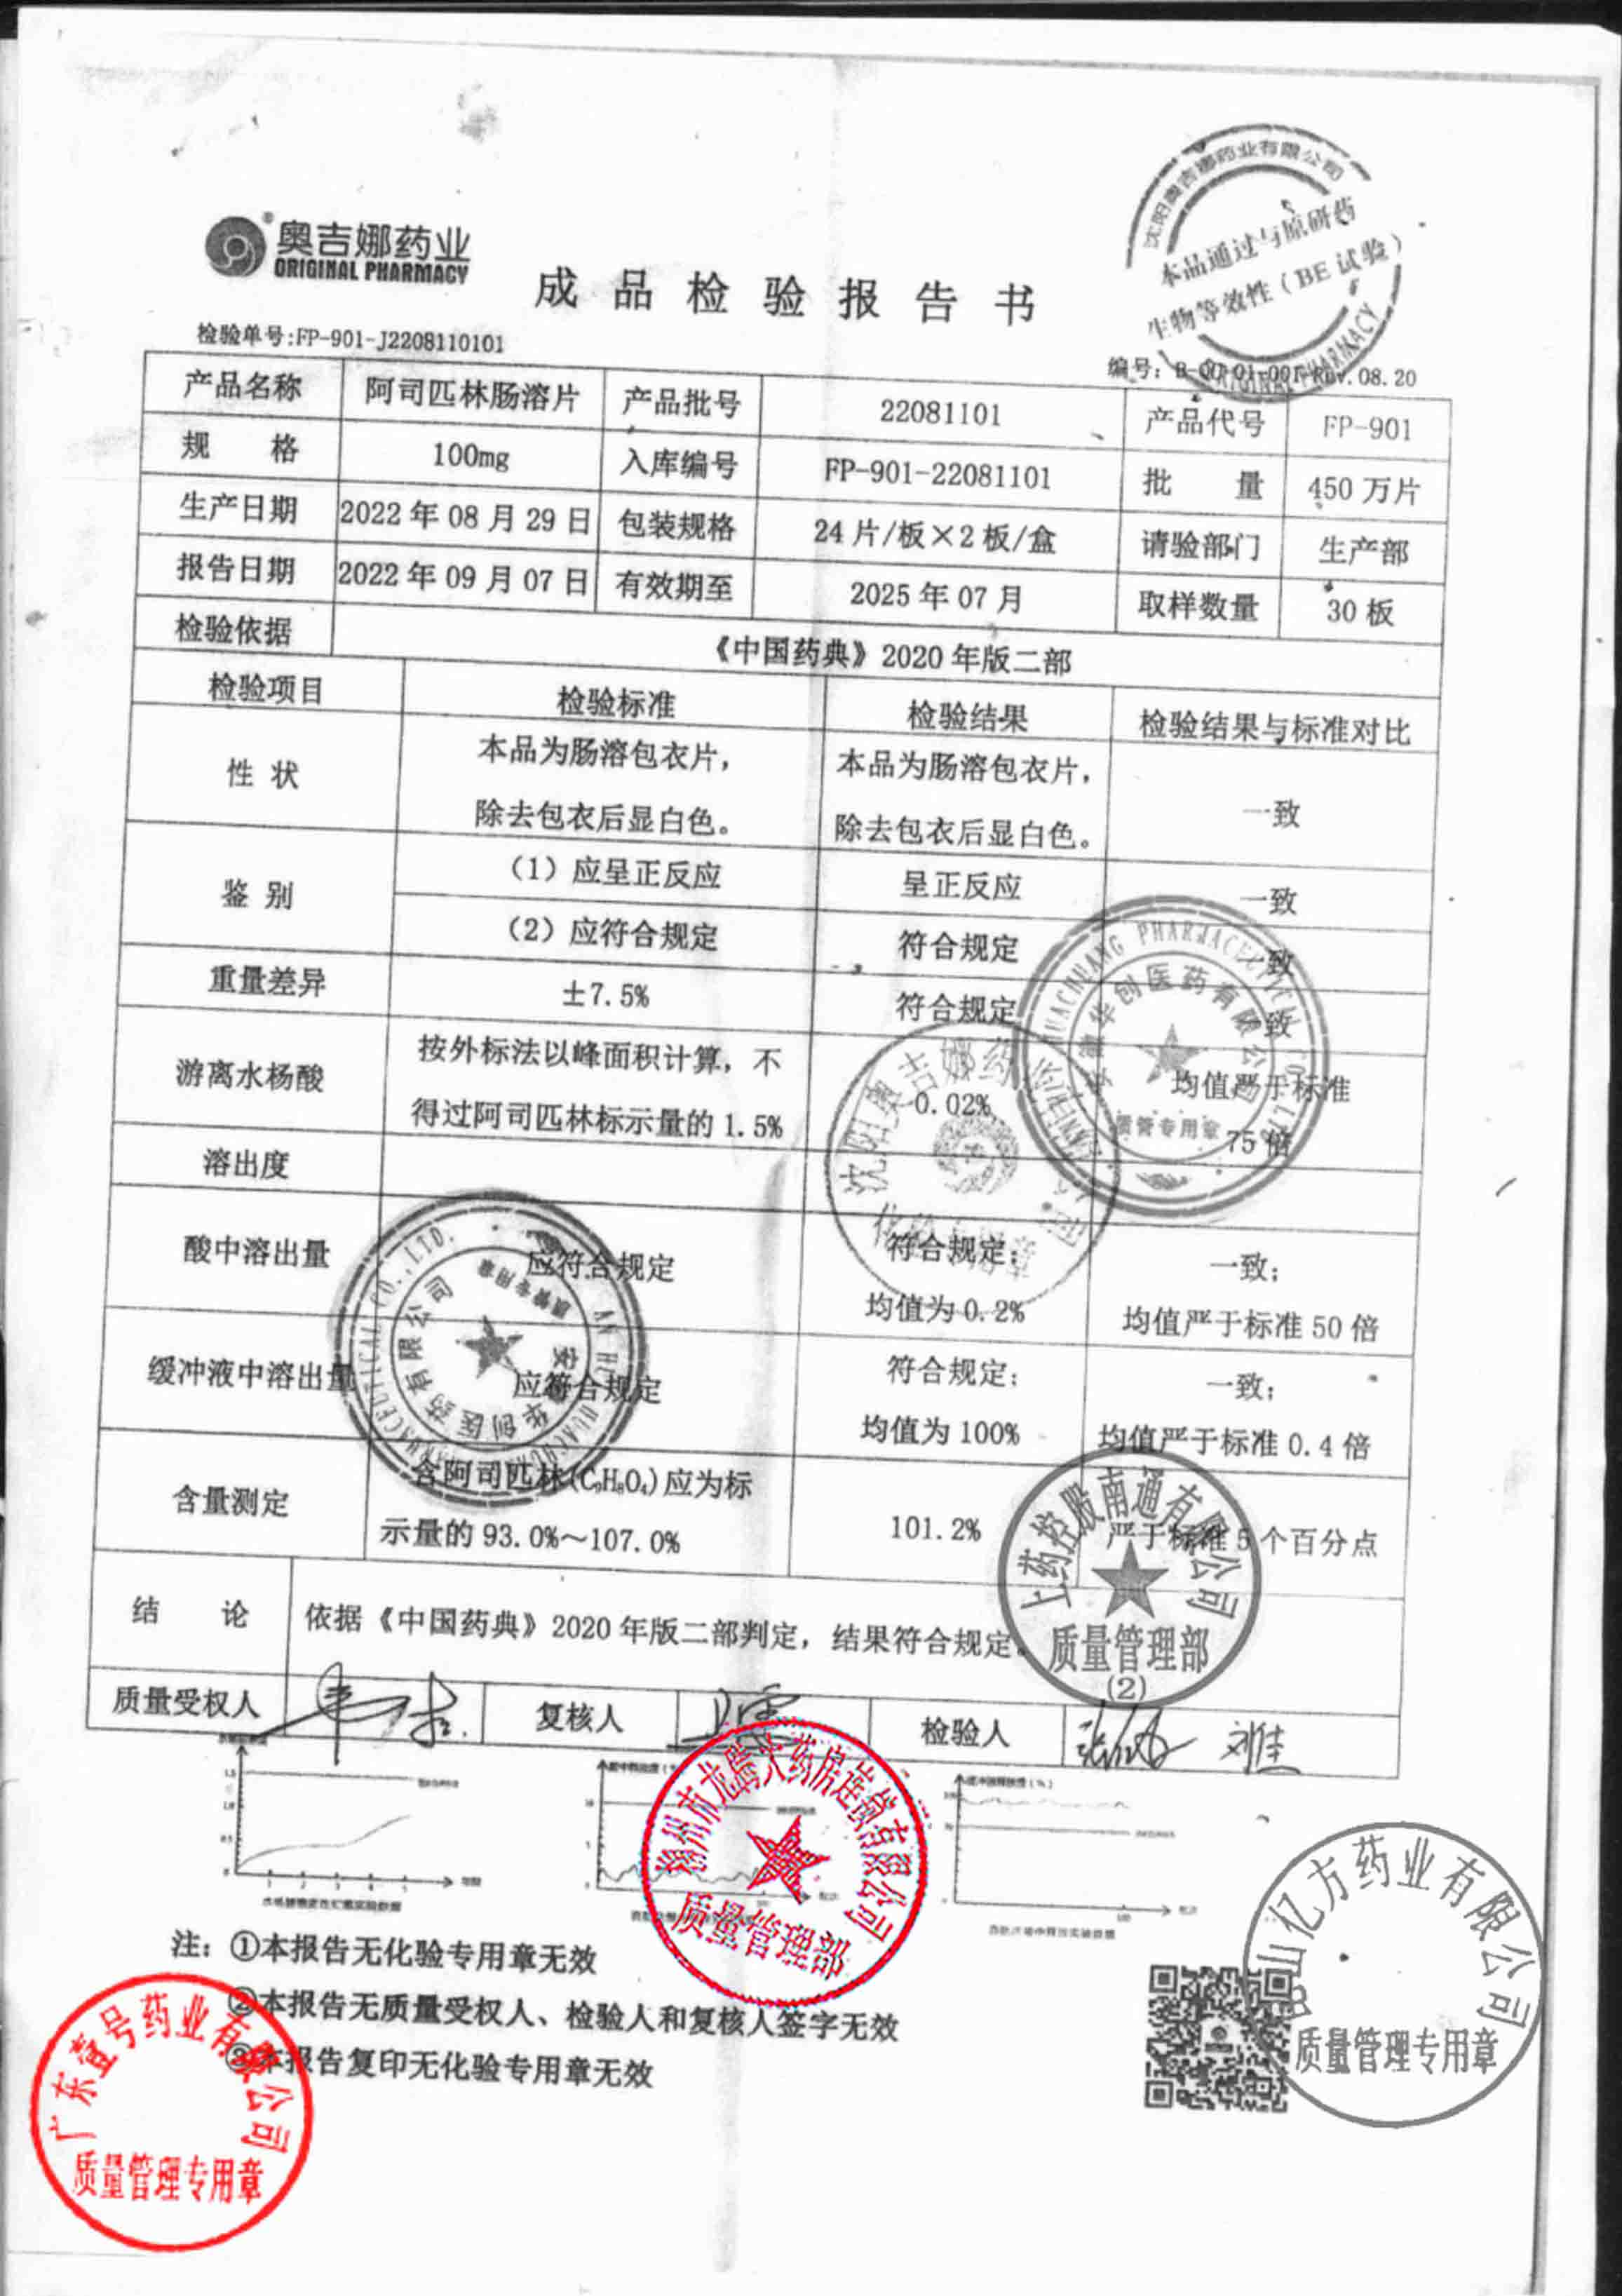 奥吉娜药业
ORIGINAL PHARMACY
成品检验报告书
沈阳奥吉娜药业有限公司
本品通过与原研药
生物等效性（BE 试验）
ORIGINAL PHARMACY
检验单号:FP-901-J2208110101
编号: Rev.08.20
产品名称 阿司匹林肠溶片 产品批号 22081101 产品代号 FP-901
规 格 100mg 入库编号 FP-901-22081101 批 量 450 万片
生产日期 2022 年 08 月 29 日 包装规格 24 片/板×2 板/盒 请验部门 生产部
报告日期 2022 年 09 月 07 日 有效期至 2025 年 07 月 取样数量 30 板
检验依据 《中国药典》2020 年版二部
检验项目 检验标准 检验结果 检验结果与标准对比
性 状 本品为肠溶包衣片， 本品为肠溶包衣片， 一致
除去包衣后显白色。 除去包衣后显白色。
鉴 别 （1）应呈正反应 呈正反应 一致
（2）应符合规定 符合规定 一致
重量差异 ±7.5% 符合规定 一致
游离水杨酸 按外标法以峰面积计算，不 0.02% 均值严于标准
得过阿司匹林标示量的 1.5% 75 倍
溶出度
酸中溶出量 应符合规定 符合规定; 一致;
均值为 0.2% 均值严于标准 50 倍
缓冲液中溶出量 应符合规定 符合规定; 一致;
均值为 100% 均值严于标准 0.4 倍
含量测定 含阿司匹林(C₉H₈O₄)应为标
示量的 93.0%～107.0% 101.2% 严于标准 5 个百分点
结 论 依据《中国药典》2020 年版二部判定，结果符合规定。
质量受权人 复核人 检验人
安徽华创医药有限公司
质管专用章
沈阳奥吉娜药
安徽华创医药有限公司
质管专用章
上药控股南通有限公司
质量管理部
(2)
龙腾大药房连锁有限公司
质量管理部
注: ①本报告无化验专用章无效
②本报告无质量受权人、检验人和复核人签字无效
③本报告复印无化验专用章无效
广东壹号药业有限公司
质量管理专用章
山亿方药业有限公司
质量管理专用章